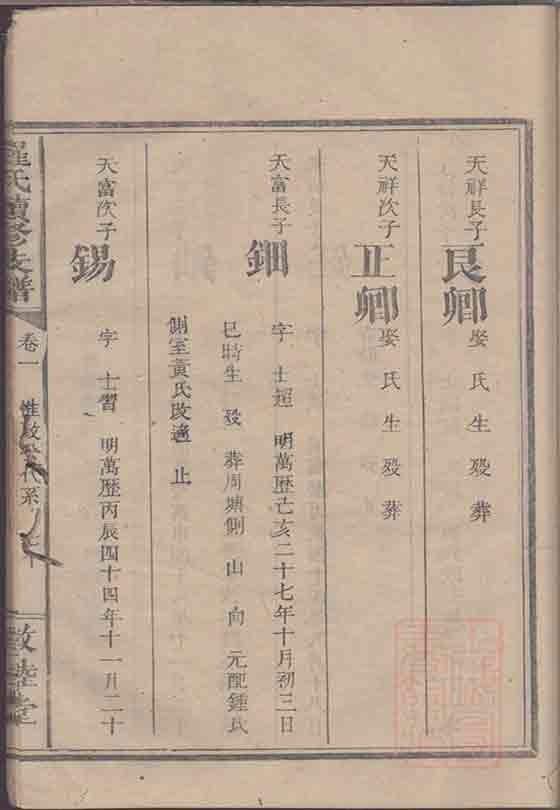 天祥長子
良卿 娶 氏 生 殁 葬
天祥次子
正卿 娶 氏 生 殁 葬
天富長子
鈿 字 士超 明萬歷己亥二十七年十月初三日
巳時生 殁 葬周塘側 山 向 元配鍾氏
側室黄氏改適 止
天富次子
錫 字 士習 明萬歷丙辰四十四年十一月二十
氏續修支譜
卷一
代系
敦睦堂